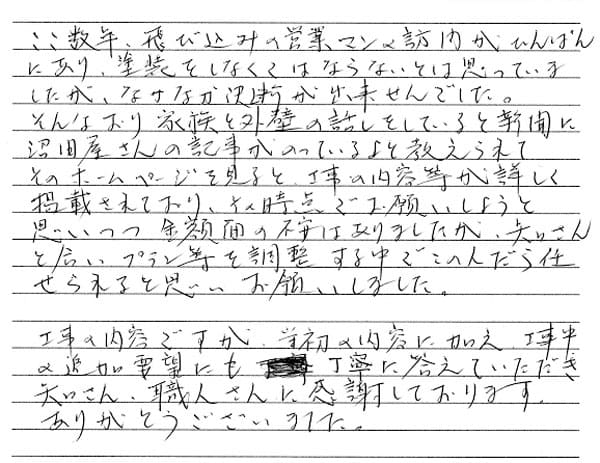 ここ数年、飛び込みの営業マンの訪問がひんぱん
にあり、塗装をしなくてはならないとは思っていま
したが、なかなか決断が出来せんでした。
そんなおり 家族と外壁の話しをしていると新聞に
沼田屋さんの記事がのっているよと教えられて
そのホームページを見ると、工事の内容等が詳しく
掲載されており、その時点でお願いしようと
思いつつ 金額面の不安はありましたが、矢口さん
と会い プラン等を調整する中でこの人だったら任
せられると思い お願いしました。
工事の内容ですが、当初の内容に加え、工事中
の追加要望にも 丁寧に答えていただき
矢口さん、職人さんに感謝しております。
ありがとうございました。